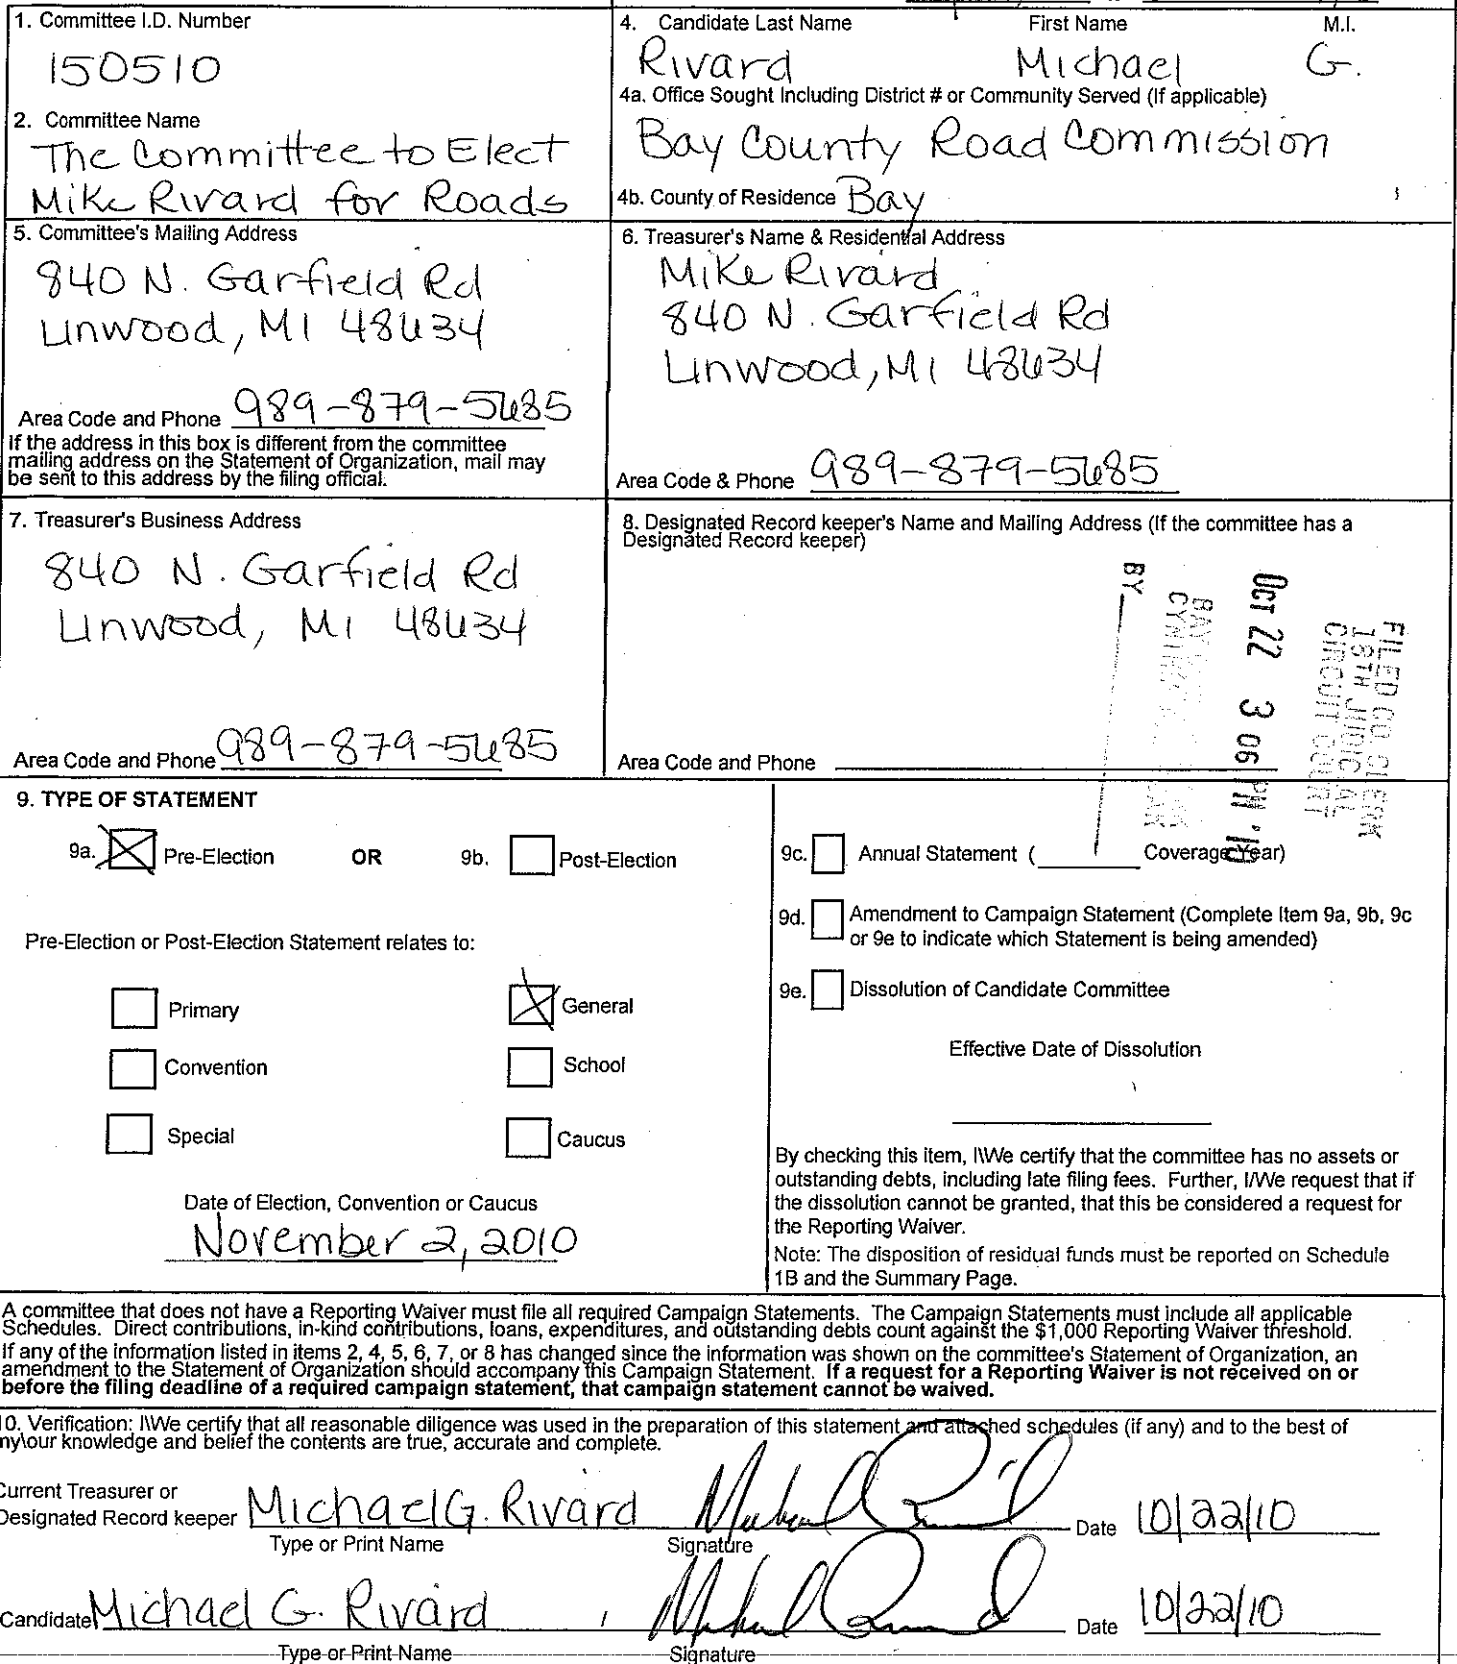 1. Committee I.D. Number
150510
2. Committee Name
The Committee to Elect
Mike Rivard for Roads
4. Candidate Last Name First Name M.I.
Rivard Michael G.
4a. Office Sought Including District # or Community Served (If applicable)
Bay County Road Commission
4b. County of Residence Bay
5. Committee's Mailing Address
840 N. Garfield Rd
Linwood, MI 48634
Area Code and Phone 989-879-5685
If the address in this box is different from the committee
mailing address on the Statement of Organization, mail may
be sent to this address by the filing official.
6. Treasurer's Name & Residential Address
Mike Rivard
840 N. Garfield Rd
Linwood, MI 48634
Area Code & Phone 989-879-5685
7. Treasurer's Business Address
840 N. Garfield Rd
Linwood, MI 48634
Area Code and Phone 989-879-5685
8. Designated Record keeper's Name and Mailing Address (If the committee has a
Designated Record keeper)
Area Code and Phone
FILED CO. CLERK
18TH JUDICIAL
CIRCUIT COURT
OCT 22 3 06 PM '10
BAY
BY
9. TYPE OF STATEMENT
9a. Pre-Election OR 9b. Post-Election
Pre-Election or Post-Election Statement relates to:
Primary General
Convention School
Special Caucus
Date of Election, Convention or Caucus
November 2, 2010
9c. Annual Statement ( Coverage Year)
9d. Amendment to Campaign Statement (Complete Item 9a, 9b, 9c
or 9e to indicate which Statement is being amended)
9e. Dissolution of Candidate Committee
Effective Date of Dissolution
By checking this item, I\We certify that the committee has no assets or
outstanding debts, including late filing fees. Further, I/We request that if
the dissolution cannot be granted, that this be considered a request for
the Reporting Waiver.
Note: The disposition of residual funds must be reported on Schedule
1B and the Summary Page.
A committee that does not have a Reporting Waiver must file all required Campaign Statements. The Campaign Statements must include all applicable
Schedules. Direct contributions, in-kind contributions, loans, expenditures, and outstanding debts count against the $1,000 Reporting Waiver threshold.
If any of the information listed in items 2, 4, 5, 6, 7, or 8 has changed since the information was shown on the committee's Statement of Organization, an
amendment to the Statement of Organization should accompany this Campaign Statement. If a request for a Reporting Waiver is not received on or
before the filing deadline of a required campaign statement, that campaign statement cannot be waived.
10. Verification: I\We certify that all reasonable diligence was used in the preparation of this statement and attached schedules (if any) and to the best of
my\our knowledge and belief the contents are true, accurate and complete.
Current Treasurer or
Designated Record keeper Michael G. Rivard Date 10/22/10
Type or Print Name Signature
Candidate Michael G. Rivard Date 10/22/10
Type or Print Name Signature